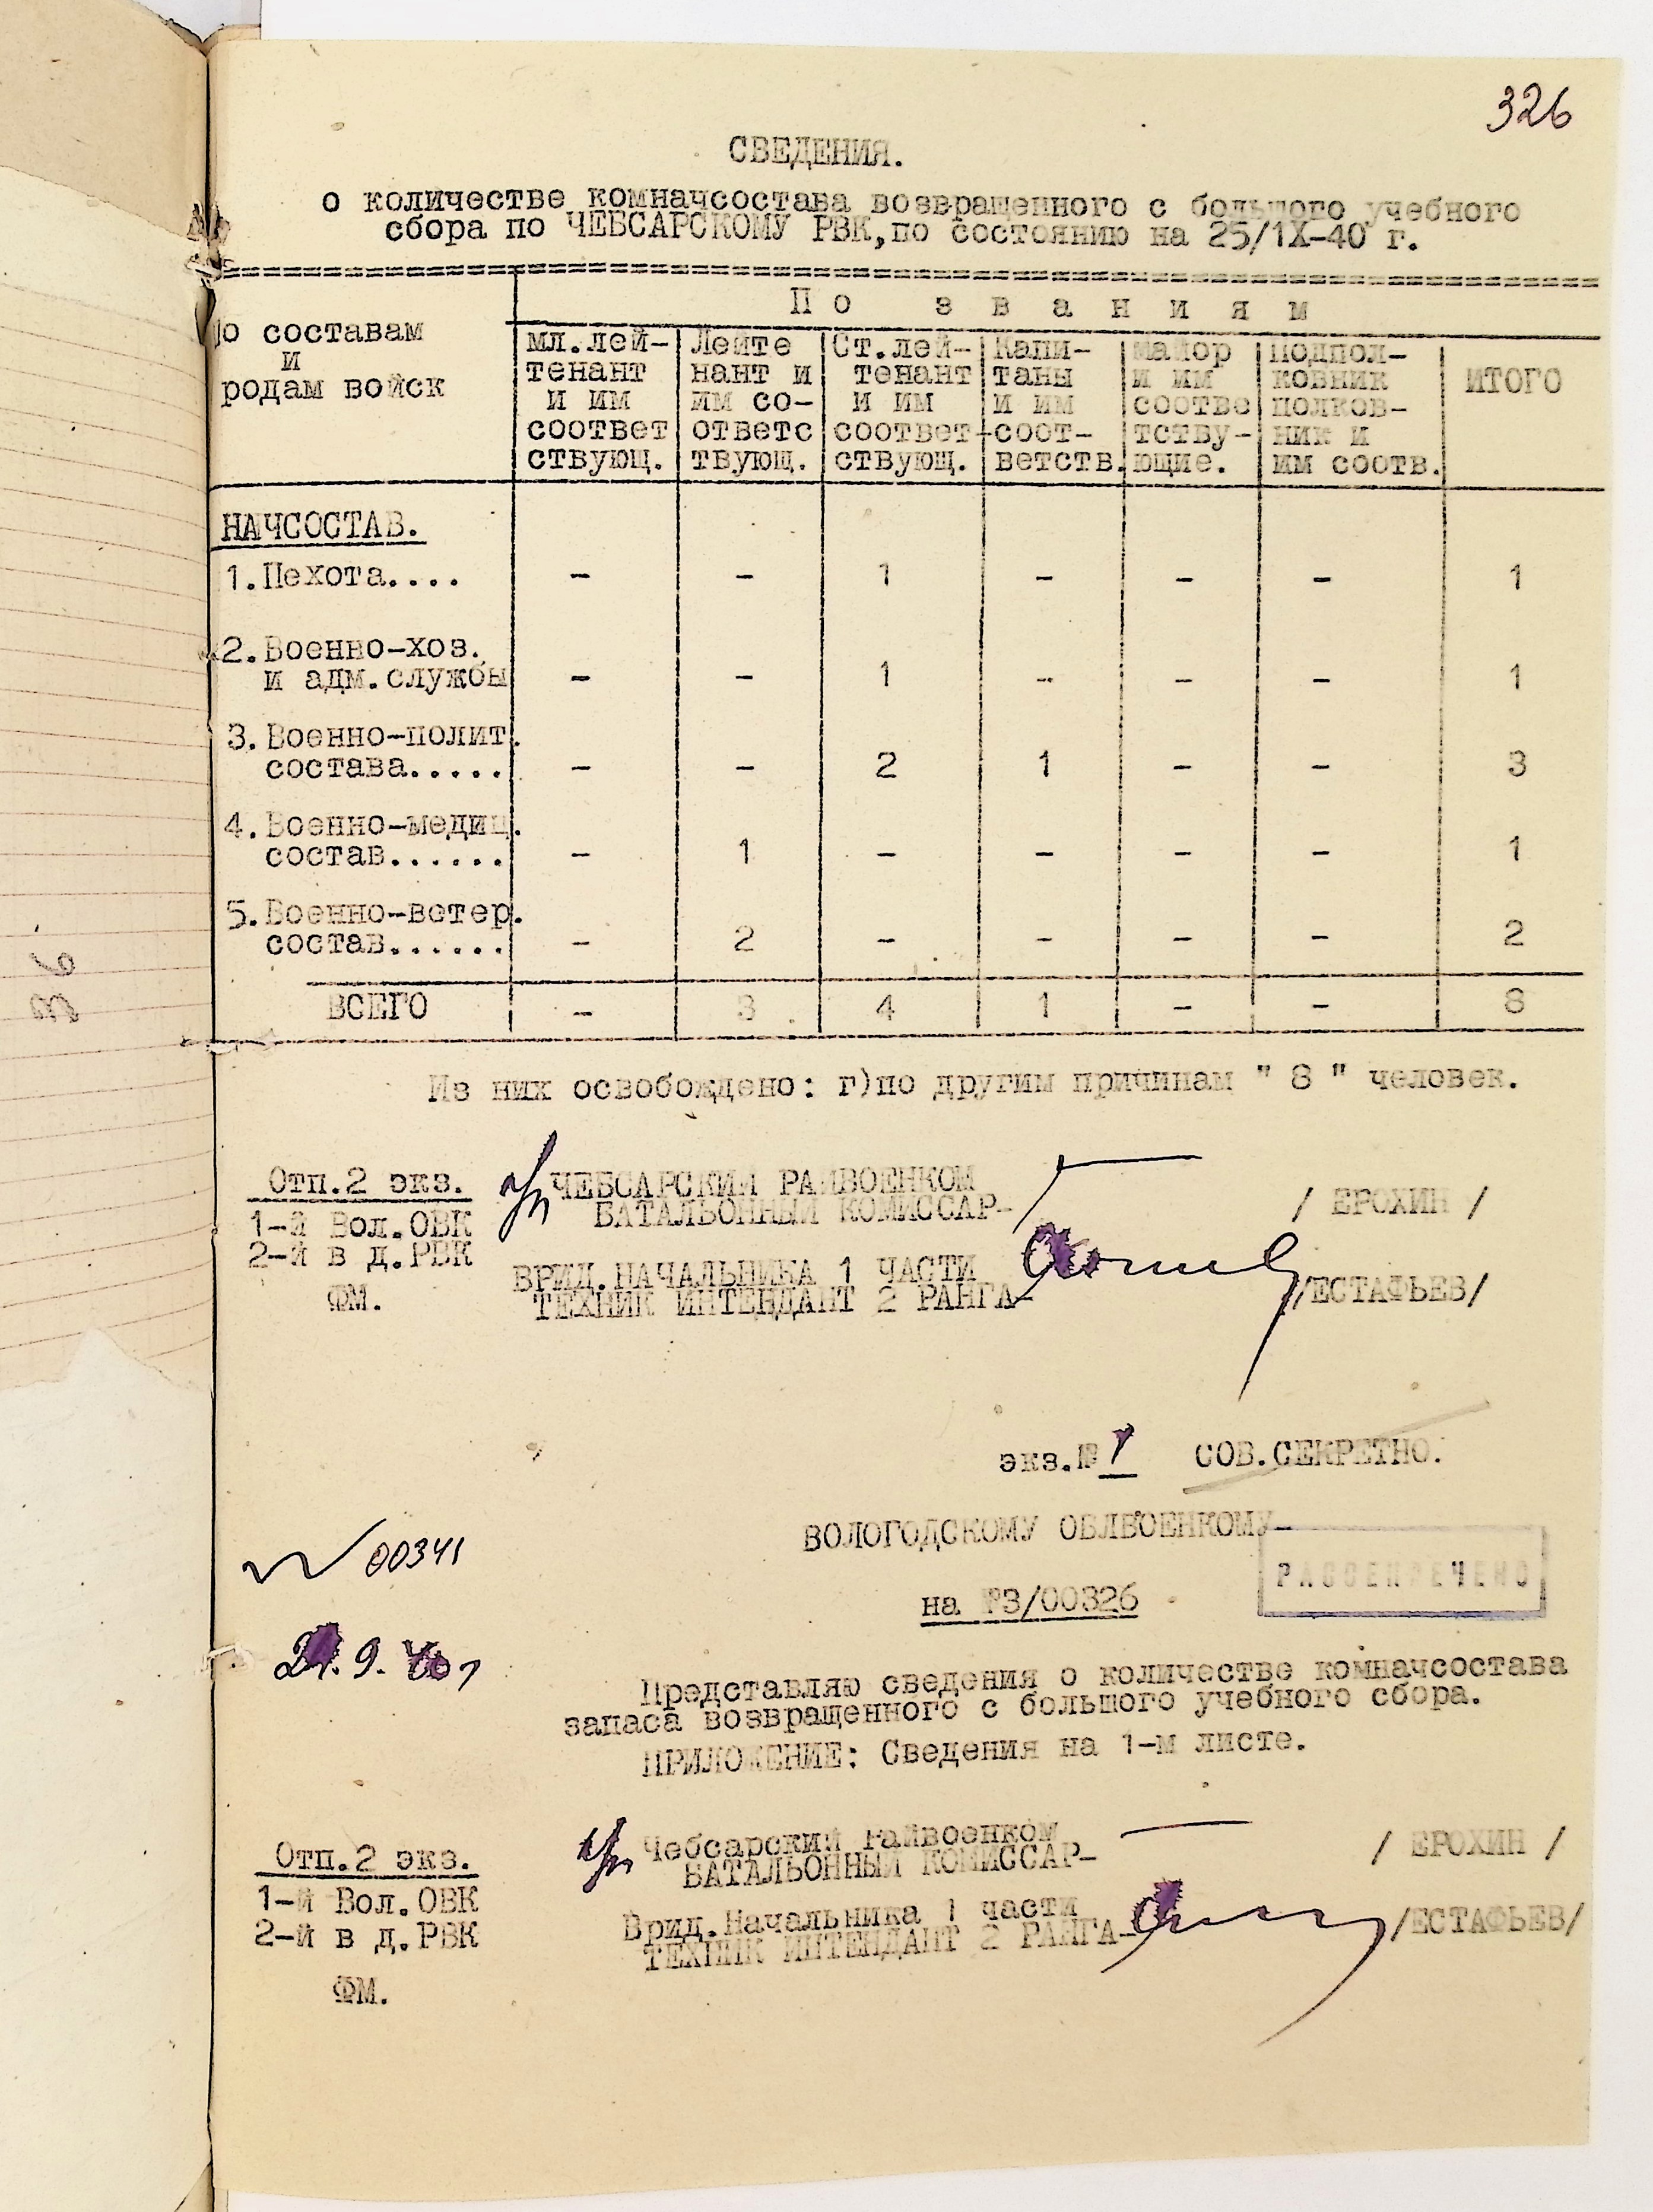 326
СВЕДЕНИЯ.
о количестве комначсостава возвращенного с большого учебного
сбора по ЧЕБСАРСКОМУ РВК, по состоянию на 25/1X-40 г.
По званиям
По составам
и
родам войск
мл.лей-
тенант
и им
соответ
ствующ.
Лейте
нант и
им со-
ответс
твующ.
Ст.лей-
тенант
и им
соответ-
ствующ.
Капи-
таны
и им
соот-
ветств.
майор
и им
соотве
тству-
ющие.
Подпол-
ковник
полков-
ник и
им соотв.
ИТОГО
НАЧСОСТАВ.
1.Пехота.... - - 1 - - - 1
2.Военно-хоз.
и адм.службы - - 1 - - - 1
3.Военно-полит.
состава..... - - 2 1 - - 3
4.Военно-медиц.
состав...... - 1 - - - - 1
5.Военно-ветер.
состав...... - 2 - - - - 2
ВСЕГО - 3 4 1 - - 8
Из них освобождено: г)по другим причинам " 8 " человек.
Отп.2 экз.
1-й Вол.ОВК
2-й в д.РВК
ФМ.
ЧЕБСАРСКИЙ РАЙВОЕНКОМ
БАТАЛЬОННЫЙ КОМИССАР- / ЕРОХИН /
ВРИД.НАЧАЛЬНИКА 1 ЧАСТИ
ТЕХНИК ИНТЕНДАНТ 2 РАНГА- /ЕСТАФЬЕВ/
экз.№ 1 СОВ.СЕКРЕТНО.
ВОЛОГОДСКОМУ ОБЛВОЕНКОМУ-
РАССЕКРЕЧЕНО
№ 00341
на №3/00326
.9.40г
Представляю сведения о количестве комначсостава
запаса возвращенного с большого учебного сбора.
ПРИЛОЖЕНИЕ: Сведения на 1-м листе.
Отп.2 экз.
1-й Вол.ОВК
2-й в д.РВК
ФМ.
Чебсарский Райвоенком
БАТАЛЬОННЫЙ КОМИССАР- / ЕРОХИН /
Врид.Начальника 1 части
ТЕХНИК ИНТЕНДАНТ 2 РАНГА- /ЕСТАФЬЕВ/